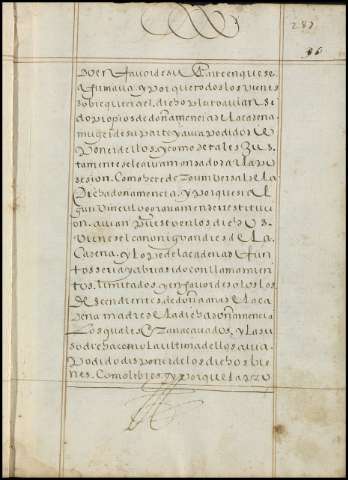 282
86
der En favor de su Parte en que se
afirmava. y Por que todos los vienes
sobre que era el dicho Pleito avian si
do Propios de doña mencia de lla cerena
muger de su parte y avia podido dis
Poner dellos y como de tales Jus
tamente se le avia mandado dar la Po
sesion. Como heredero Universal de la
Dicha doña mencia. y Porque si al
gun Vinculo o gravamen de restituci
on. avian Puesto en los dichos
Vienes el canonigo andres de la
Carena. y Lope de la cadena defun
tos seria y abria sido con llamamien
tos. limitados y en favor de solos los
Descendientes de doña ana de la ca
dena madre de la dicha doña mencia
Los quales Estavan acavados. y La su
so dicha como la ultima dellos avia
Podido disponer de los dichos bie
nes. Como libres. y Porque la Pro